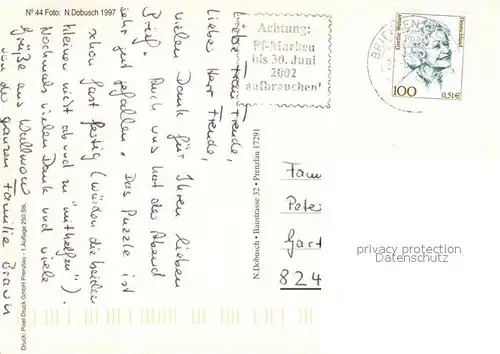 Nº 44 Foto: N.Dobusch 1997
Liebe Frau Frende,
Lieber Herr Frende,
vielen Dank für Ihren lieben
Brief. Auch uns hat der Abend
sehr gut gefallen. Das Puzzle ist
schon fast fertig (würden die beiden
kleinen nicht ab und zu "mithelfen").
Nochmals vielen Dank und viele
Grüße aus Wallmow
von der ganzen Familie Braun
Druck: Pixel Druck GmbH Prenzlau • 1. Auflage 250 Stk.
N.Dobusch • Baustrasse 32 • Prenzlau 17291
Achtung:
Pf-Marken
bis 30. Juni
2002
aufbrauchen!
BRIEFZEN
Deutschland
Grethe Weiser
100
0,51€
Fam
Pete
Gart
824
privacy protection
Datenschutz